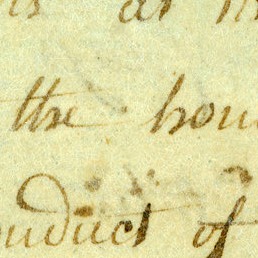 at
the hou
onduct of